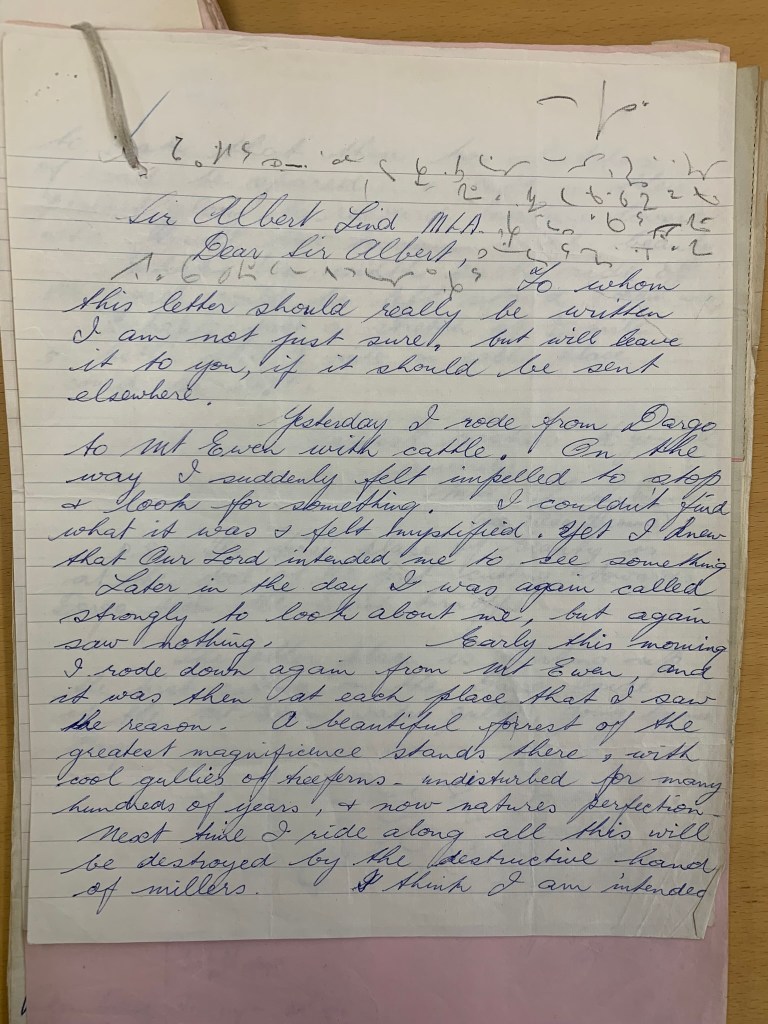 Sir Albert Lind MLA.
Dear Sir Albert,
To whom
this letter should really be written
I am not just sure, but will leave
it to you, if it should be sent
elsewhere.
Yesterday I rode from Dargo
to Mt Ewen with cattle. On the
way I suddenly felt impelled to stop
& look for something. I couldn't find
what it was & felt mystified. Yet I knew
that Our Lord intended me to see something
Later in the day I was again called
strongly to look about me, but again
saw nothing. Early this morning
I rode down again from Mt Ewen, and
it was then at each place that I saw
the reason. A beautiful forrest of the
greatest magnificence stands there, with
cool gullies of treeferns - undisturbed for many
hundreds of years, & now natures perfection -
Next time I ride along all this will
be destroyed by the destructive hand
of millers. I think I am intended